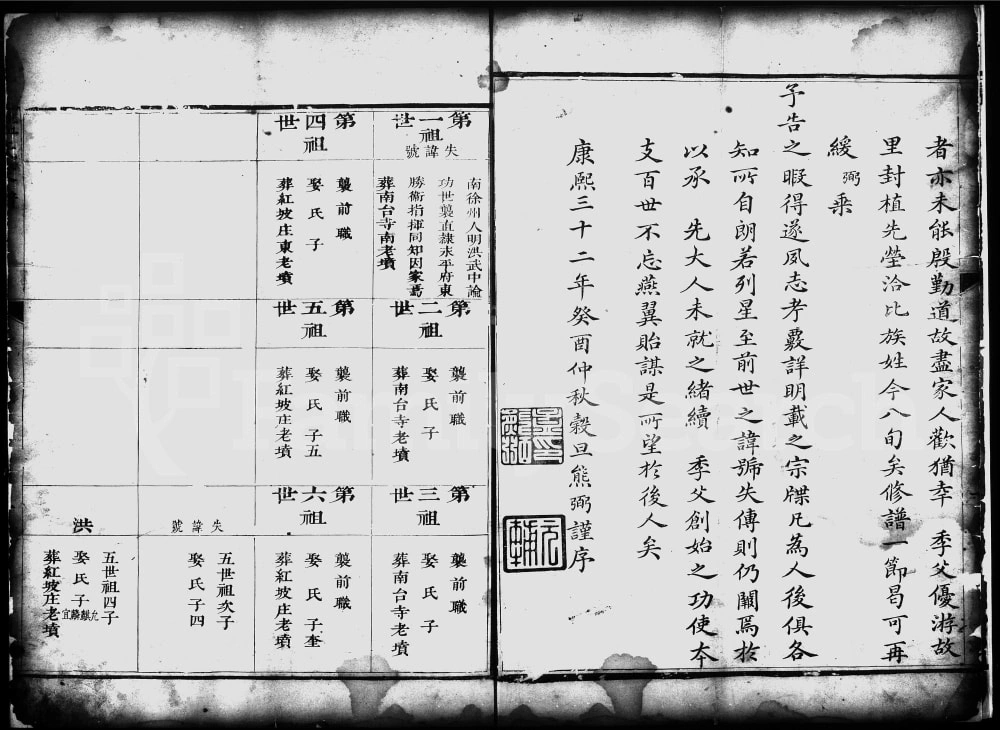 者亦未能殷勤道故盡家人歡猶幸 季父優游故
里封植先塋洽比族姓今八旬矣修譜一節曷可再
緩弼乘
予告之暇得遂夙志考覈詳明載之宗牒凡為人後俱各
知所自朗若列星至前世之諱號失傳則仍闕焉於
以承 先大人未就之緒續 季父創始之功使本
支百世不忘燕翼貽謀是所望於後人矣
康熙三十二年癸酉仲秋穀旦熊弼謹序
第一世祖
失諱號
南徐州人明洪武中論
功世襲直隸永平府東
勝衛指揮同知因家焉
葬南台寺南老墳
第二世祖
襲前職
娶 氏 子
葬南台寺老墳
第三世祖
襲前職
娶 氏 子
葬南台寺老墳
第四世祖
襲前職
娶 氏 子
葬紅坡庄東老墳
第五世祖
襲前職
娶 氏 子五
葬紅坡庄老墳
第六世祖
襲前職
娶 氏 子奎
葬紅坡庄老墳
失諱號
五世祖次子
娶 氏 子四
洪
五世祖四子
娶 氏 子
葬紅坡庄老墳